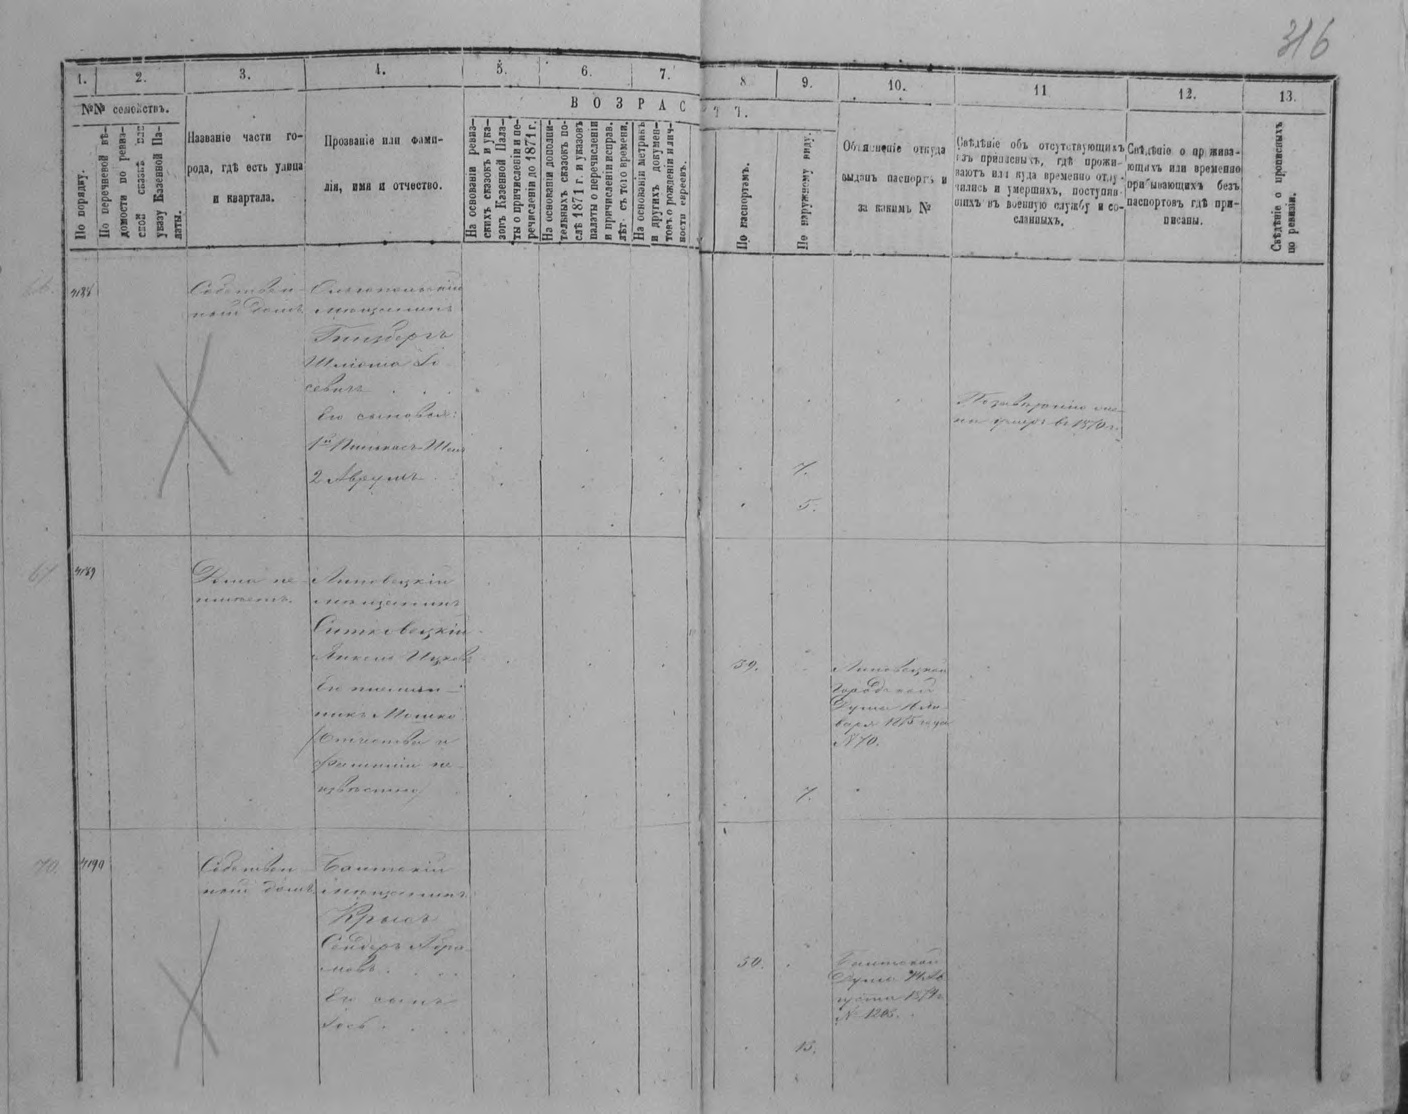 316
1. 2. 3. 4. 5. 6. 7. 8 9. 10. 11 12. 13.
№№ семействъ.
По порядку.
По перечневой вѣ-
домости по ревиз-
ской сказкѣ или
указу Казенной Па-
латы.
Названіе части го-
рода, гдѣ есть улица
и квартала.
Прозваніе или фами-
лія, имя и отчество.
ВОЗРАС
ТЪ.
На основаніи ревиз-
скихъ сказокъ и ука-
зовъ Казенной Пала-
ты о причисленіи и пе-
речисленіи до 1871 г.
На основаніи дополни-
тельныхъ сказокъ по-
слѣ 1871 г. и указовъ
палаты о перечисленіи
и причисленіи исправ.
лѣтъ съ того времени.
На основаніи метрикъ
и другихъ докумен-
товъ о рожденіи и лич-
ности евреевъ.
По паспортамъ.
По наружному виду.
Объясненіе откуда
выданъ паспортъ и
за какимъ №
Свѣдѣніе объ отсутствующихъ
изъ приписныхъ, гдѣ прожи-
ваютъ или куда временно отлу-
чились и умершихъ, поступив-
шихъ въ военную службу и со-
сланныхъ.
Свѣдѣніе о прожива-
ющихъ или временно
прибывающихъ безъ
паспортовъ гдѣ при-
писаны.
Свѣдѣніе о прописныхъ
по ревизіи.
4188
Собствен-
ный домъ
Ольгопольскій
мѣщанинъ
Гинзбергъ
Шліома Іо
севичъ
Его сыновья:
1й Пинхасъ
2 Аврумъ
умеръ въ 1870 г.
7.
5.
67
4189
Дома не
имѣетъ.
Липовецкій
мѣщанинъ
Ицковъ
Его племян-
никъ Мошко
(Отчество и
фамилія не-
извѣстно)
39.
Липовецкой
Городской
Думы
года
№ 70.
7.
70.
4190
Собствен
ный домъ
Балтскій
мѣщанинъ
Крысъ
Сендеръ Абра
мовъ
Его сынъ
Іосъ
50.
Балтской
Думы
1874 г.
№ 1203.
13.